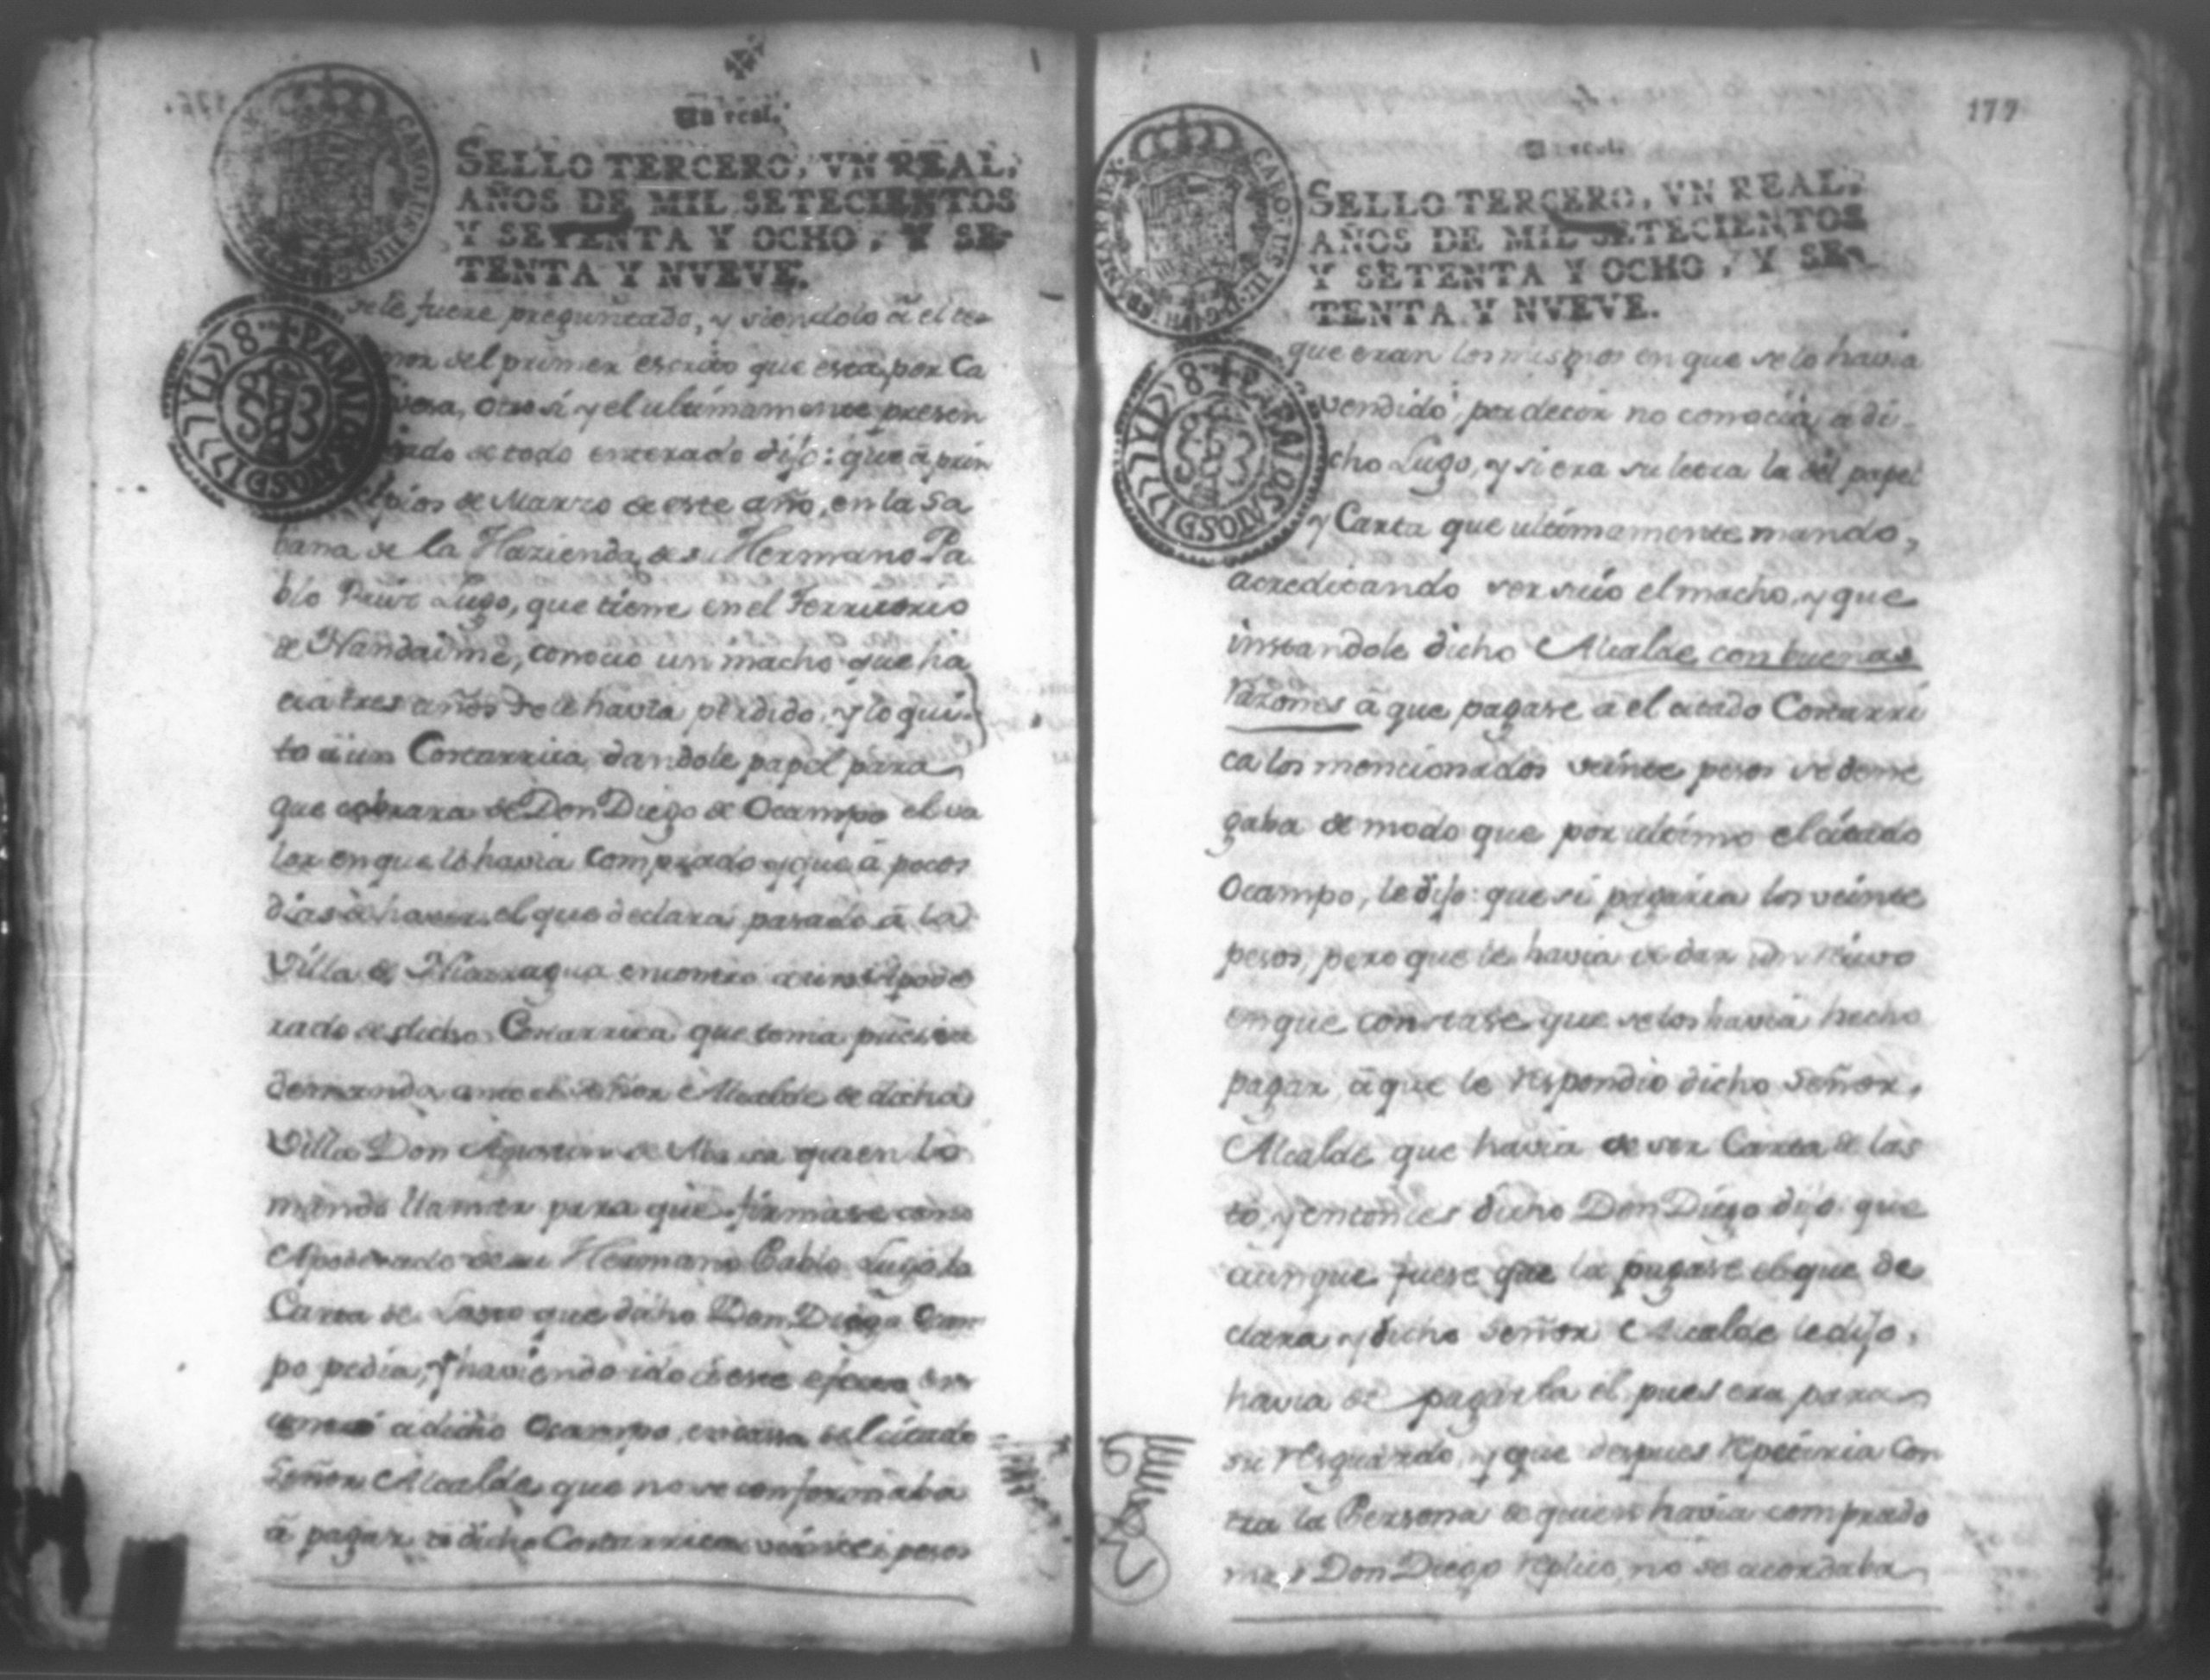 Un real.
SELLO TERCERO, VN REAL,
AÑOS DE MIL SETECIENTOS
Y SETENTA Y OCHO, Y SE-
TENTA Y NVEVE.
CAROLUS III
PARA LOS AÑOS D 1778
se le fuere preguntado, y siendolo â el te-
nor del primer escrito que esta por Ca
vera, otro si y el ultimamente presen
tado de todo enterado dijo: que â prin
cipios de Marzo de este año, en la Sa
bana de la Hazienda de su Hermano Pa
blo Lugo, que tiene en el Territorio
de Nandaime, conocio un macho que ha
cia tres años se le havia perdido, y lo qui-
to â un Costarrica, dandole papel para
que cobrara de Don Diego de Ocampo el va
lor en que lo havia comprado y que â pocos
dias de haver el que declara pasado â la
Villa de Nicaragua encontro a un Apode
rado de dicho Costarrica que tenia puesta
demanda ante el Señor Alcalde de dicha
Villa Don Agustin de quien lo
mando llamar para que firmase como
Apoderado de su Hermano Pablo Lugo la
Carta de Lasto que dicho Don Diego Ocam
po pedia, y haviendo ido â este efecto en
contró a dicho Ocampo, en casa del citado
Señor Alcalde, que no se conformaba
â pagar a dicho Costarrica veinte pesos
177
Un real.
SELLO TERCERO, VN REAL,
AÑOS DE MIL SETECIENTOS
Y SETENTA Y OCHO, Y SE-
TENTA Y NVEVE.
CAROLUS III D G HISPANIAR REX
PARA LOS AÑOS D 1778
que eran los mismos en que se lo havia
vendido, por decir no conocia, a di-
cho Lugo, y si era su letra la del papel
y Carta que ultimamente mando,
acreditando ser suio el macho, y que
instandole dicho Alcalde, con buenas
razones â que pagase a el citado Costarri
ca los mencionados veinte pesos se dene
gaba de modo que por ultimo el citado
Ocampo, le dijo: que si pagaria los veinte
pesos, pero que le havia de dar un recivo
en que constase que se los havia hecho
pagar, â que le respondio dicho Señor,
Alcalde que havia de ser Carta de las
to, y entonces dicho Don Diego dijo que
aunque fuese que la pagase el que de
clara, y dicho Señor Alcalde le dijo,
havia de pagarla el pues era para
su resguardo, y que despues repetiria con
tra la Persona de quien havia comprado
mas Don Diego replico, no se acordaba